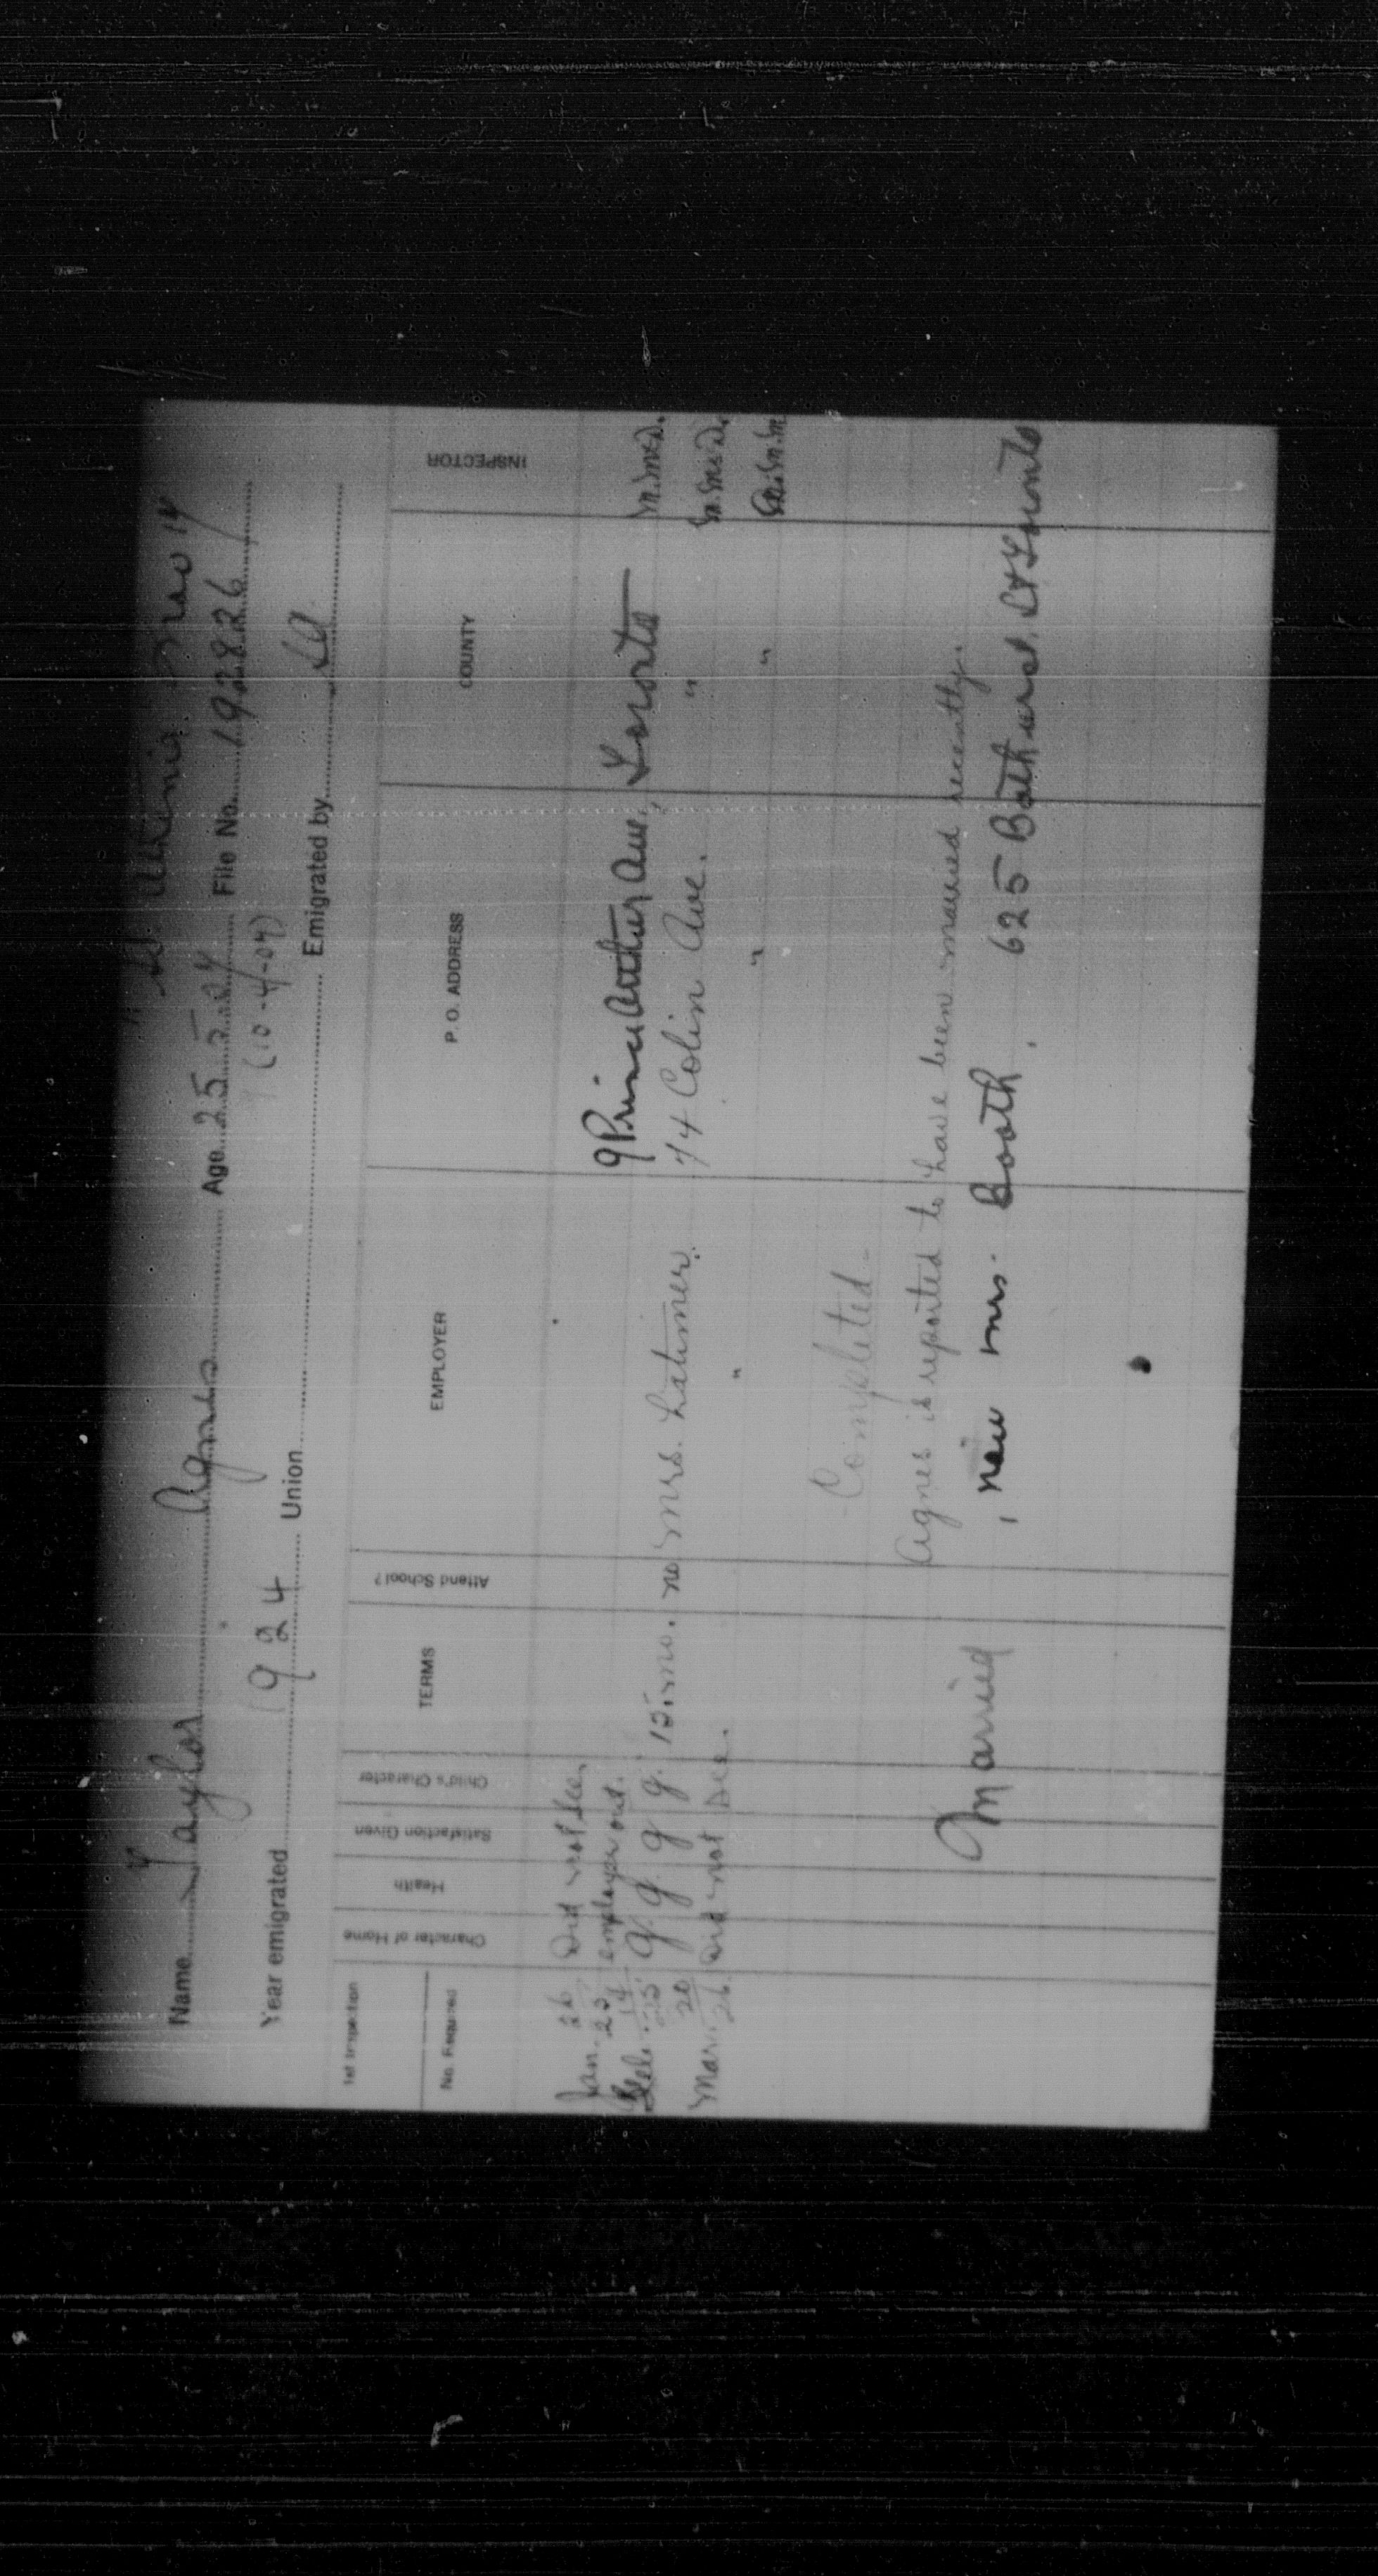 Nov 14
Name Taylor Agnes Age 25 File No. 192826
(10-4-09)
Year emigrated 1924 Union Emigrated by SA
1st Inspection
No. Required
Character of Home
Health
Satisfaction Given
Child's Character
TERMS
Attend School?
EMPLOYER
P. O. ADDRESS
COUNTY
INSPECTOR
Jan. 26 Did not see,
23 employer out. 9 Prince Arthur Ave, Toronto
Feb. 14/25 g. g. g g. 15. mo. no Mrs. Latimer. 74 Colin Ave. " M.McD.
Mar. 20/26 Did not see. " " "
Completed
Agnes is reported to have been married recently.
Married , now Mrs. Booth, 625 Bathurst St Toronto